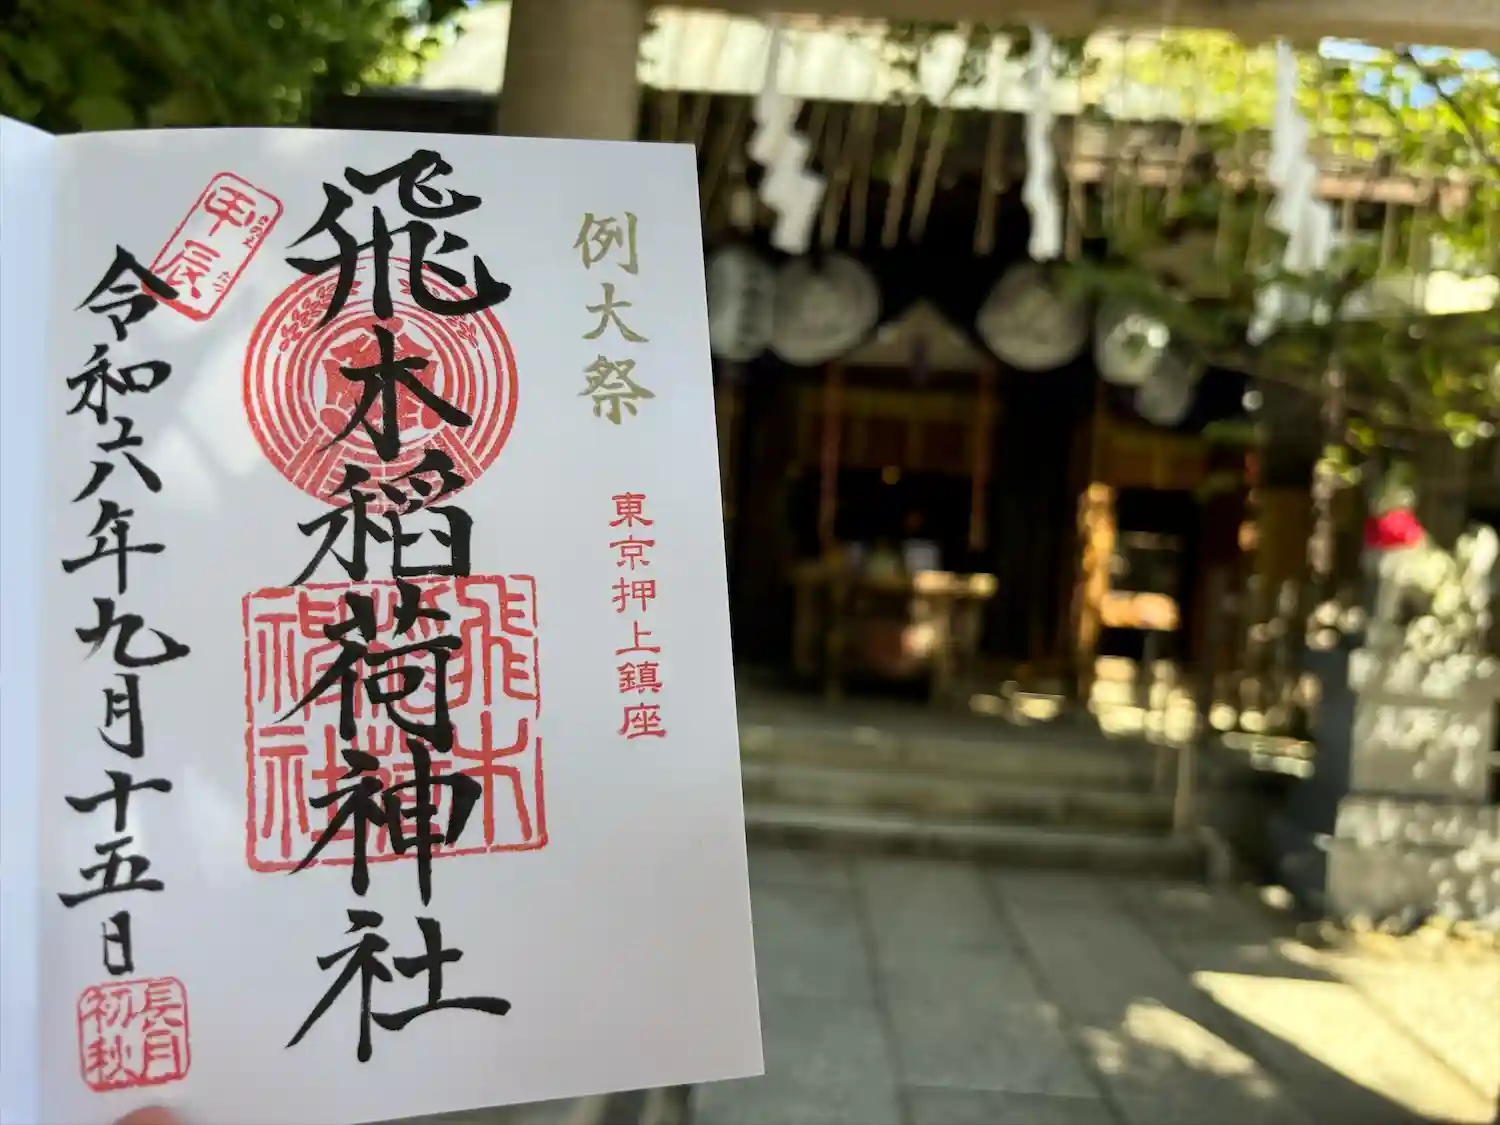 例大祭
東京押上鎮座
飛木稲荷神社
飛木
稲荷
神社
甲辰
令和六年九月十五日
長月
初秋